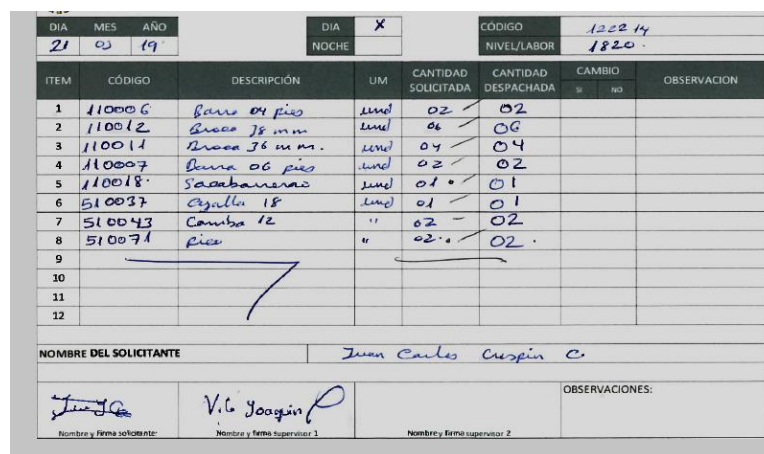 DIA MES AÑO DIA X CÓDIGO 122214
21 03 19 NOCHE NIVEL/LABOR 1820.
ITEM CÓDIGO DESCRIPCIÓN UM CANTIDAD SOLICITADA CANTIDAD DESPACHADA CAMBIO SI NO OBSERVACION
1 110006 Barra 04 pies und 02 02
2 110012 Broca 38 mm und 06 06
3 110011 Broca 36 mm. und 04 04
4 110007 Barra 06 pies und 02 02
5 110018. Sacabarreno und 01 01
6 510037 18 und 01 01
7 510043 12 " 02 02
8 510071 Pico " 02 02.
9
10
11
12
NOMBRE DEL SOLICITANTE Juan Carlos Crespin C.
OBSERVACIONES:
V.G Joaquin
Nombre y Firma solicitante Nombre y firma supervisor 1 Nombre y Firma supervisor 2